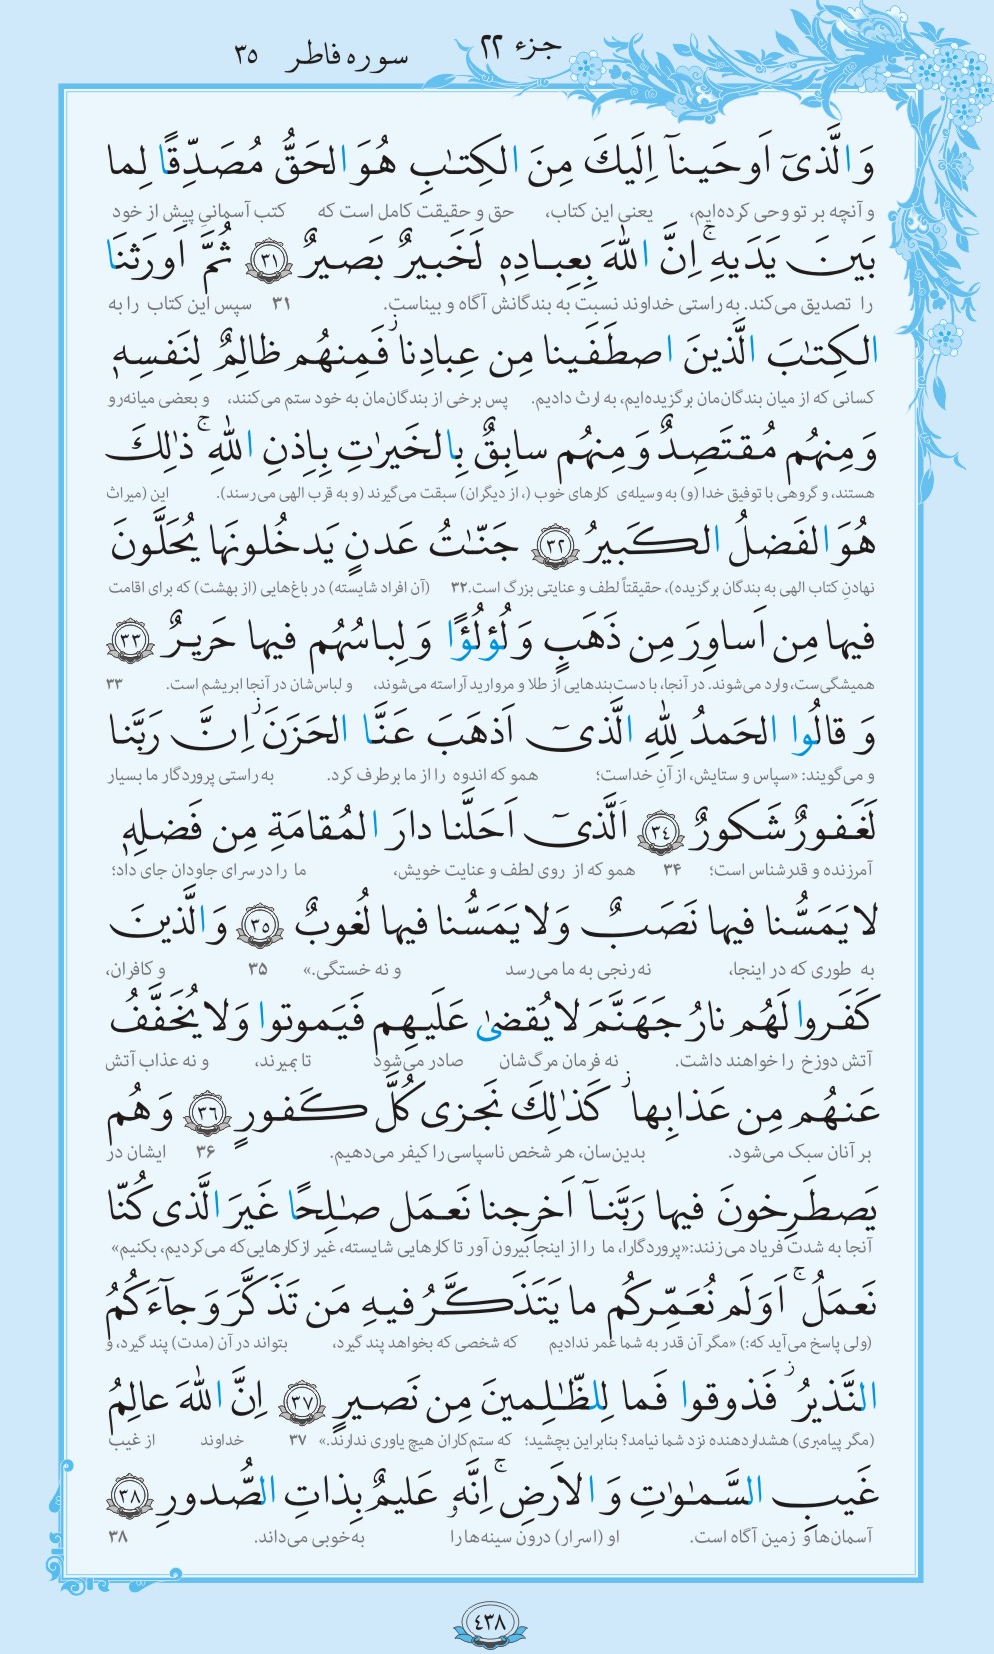 جزء ۲۲
سوره فاطر ۳۵
وَ الَّذیٓ اَوحَینآ اِلَیكَ مِنَ الكِتٰبِ هُوَ الحَقُّ مُصَدِّقًا لِما
و آنچه بر تو وحی کرده‌ایم، یعنی این کتاب، حق و حقیقت کامل است که کتب آسمانیِ پیش از خود
بَینَ یَدَیهِ ۚ اِنَّ اللّٰهَ بِعِبادِهٖ لَخَبیرٌ بَصیرٌ ﴿۳۱﴾ ثُمَّ اَورَثنَا
را تصدیق می‌کند. به‌راستی خداوند نسبت به بندگانش آگاه و بیناست. ۳۱ سپس این کتاب را به
الكِتٰبَ الَّذینَ اصطَفَینا مِن عِبادِنا ۖ فَمِنهُم ظالِمٌ لِنَفسِهٖ
کسانی که از میان بندگان‌مان برگزیده‌ایم، به ارث دادیم. پس برخی از بندگان‌مان به خود ستم می‌کنند، و بعضی میانه‌رو
وَ مِنهُم مُقتَصِدٌ وَ مِنهُم سابِقٌ بِالخَیرٰتِ بِاِذنِ اللّٰهِ ۚ ذٰلِكَ
هستند، و گروهی با توفیق خدا (و) به وسیله‌ی کارهای خوب (، از دیگران) سبقت می‌گیرند (و به قرب الهی می‌رسند). این (میراث
هُوَ الفَضلُ الكَبیرُ ﴿۳۲﴾ جَنّٰتُ عَدنٍ یَدخُلونَها یُحَلَّونَ
نهادنِ کتاب الهی به بندگان برگزیده)، حقیقتاً لطف و عنایتی بزرگ است. ۳۲ (آن افراد شایسته) در باغ‌هایی (از بهشت) که برای اقامت
فیها مِن اَساوِرَ مِن ذَهَبٍ وَ لُؤلُؤًا وَ لِباسُهُم فیها حَریرٌ ﴿۳۳﴾
همیشگی‌ست، وارد می‌شوند. در آنجا، با دست‌بندهایی از طلا و مروارید آراسته می‌شوند، و لباس‌شان در آنجا ابریشم است. ۳۳
وَ قالُوا الحَمدُ لِلّٰهِ الَّذیٓ اَذهَبَ عَنَّا الحَزَنَ ۖ اِنَّ رَبَّنا
و می‌گویند: «سپاس و ستایش، از آنِ خداست؛ همو که اندوه را از ما برطرف کرد. به‌راستی پروردگار ما بسیار
لَغَفورٌ شَكورٌ ﴿۳٤﴾ اَلَّذیٓ اَحَلَّنا دارَ المُقامَةِ مِن فَضلِهٖ
آمرزنده و قدرشناس است؛ ۳۴ همو که از روی لطف و عنایت خویش، ما را در سرای جاودان جای داد؛
لا یَمَسُّنا فیها نَصَبٌ وَ لا یَمَسُّنا فیها لُغوبٌ ﴿۳۵﴾ وَ الَّذینَ
به طوری که در اینجا، نه رنجی به ما می‌رسد و نه خستگی.» ۳۵ و کافران،
كَفَروا لَهُم نارُ جَهَنَّمَ لا یُقضیٰ عَلَیهِم فَیَموتوا وَ لا یُخَفَّفُ
آتش دوزخ را خواهند داشت. نه فرمان مرگ‌شان صادر می‌شود تا بمیرند، و نه عذاب آتش
عَنهُم مِن عَذابِها ۚ كَذٰلِكَ نَجزی كُلَّ كَفورٍ ﴿۳٦﴾ وَ هُم
بر آنان سبک می‌شود. بدین‌سان، هر شخص ناسپاسی را کیفر می‌دهیم. ۳۶ ایشان در
یَصطَرِخونَ فیها رَبَّنآ اَخرِجنا نَعمَل صٰلِحًا غَیرَ الَّذی كُنّا
آنجا به شدت فریاد می‌زنند: «پروردگارا، ما را از اینجا بیرون آور تا کارهایی شایسته، غیر از کارهایی که می‌کردیم، بکنیم»
نَعمَلُ ۚ اَوَلَم نُعَمِّركُم ما یَتَذَكَّرُ فیهِ مَن تَذَكَّرَ وَ جآءَكُمُ
(ولی پاسخ می‌آید که:) «مگر آن قدر به شما عمر ندادیم که شخصی که بخواهد پند گیرد، بتواند در آن (مدت) پند گیرد، و
النَّذیرُ ۖ فَذوقوا فَما لِلظّٰلِمینَ مِن نَصیرٍ ﴿۳۷﴾ اِنَّ اللّٰهَ عالِمُ
(مگر پیامبری) هشداردهنده نزد شما نیامد؟ بنابراین بچشید؛ که ستم‌کاران هیچ یاوری ندارند.» ۳۷ خداوند از غیب
غَیبِ السَّمٰوٰتِ وَ الاَرضِ ۚ اِنَّهٗ عَلیمٌ بِذاتِ الصُّدورِ ﴿۳۸﴾
آسمان‌ها و زمین آگاه است. او (اسرار) درون سینه‌ها را به‌خوبی می‌داند. ۳۸
٤۳۸